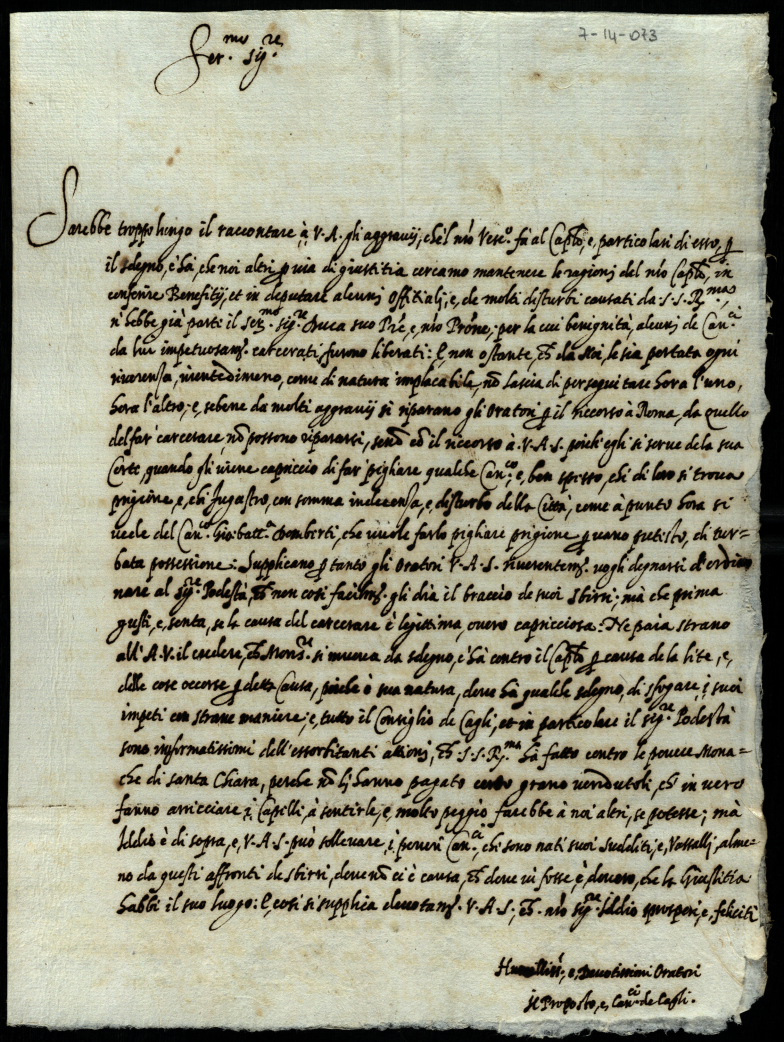 7-14-073
Ser.mo Sig.re
Sarebbe troppo lungo il raccontare à V.A. gli aggravij, che'l nrõ Vesc.o fà al Capl̃o, e, particolari di esso, p
il sdegno, c'hà, che noi altri p via di giustitia cercamo mantenere le ragionj del nrõ Capl̃o, in
conferire Benefitij, et in deputare alcunj Offitialj; e, de molti disturbi causati da S.S.R.ma
n'hebbe già parti il Ser.mo Sig.re Duca suo Prẽ, e, nrõ Prõne; per la cui benignità, alcunj de Can.ci
da lui impetuosam.te carcerati, furono liberati: E, non ostante, ch̃ da Noi, le sia portata ogni
riverenza, nientedimeno, come di natura implacabile, nõ lascia di perseguitare hora l'uno,
hora l'altro; e, sebene da molti aggravij si riparano gli Oratori p il riccorso à Roma, da quello
del far' carcerare, nõ possono ripararsi, senõ cõ il riccorso à V.A.S. poich'egli si serve dela sua
Corte, quando gli viene capriccio di far pigliare qualche Can.co, e, ben spesso, chi di loro si trova
prigione, e, chi fugasco, con somma indecenza, e, disturbo della Città, come à punto hora si
vede del Can.co Gio: batt.a Bomberti, che vuole farlo pigliare prigione p vano pretesto, di tur=
bata possessione: Supplicano p tanto gli Oratori V.A.S. riverentem.te vogli degnarsi d'ordi
nare al Sig.re Podestà, ch̃ non cosi facilm.te gli dia il braccio de suoi Sbirri; mà che prima
gusti, e, senta, se la causa del carcerare è legittima, overo capricciosa: Ne paia strano
all'A.V. il credere, ch̃ Mons.re si mueva da sdegno, c'hà contro il Capl̃o p causa de la lite, e,
delle cose occorse p detta Causa, poiche è sua natura, dove hà qualche sdegno, di sfogare i suoi
impeti con strane maniere; e, tutto il Consiglio de Cagli, et in particolare il Sig.re Podestà
sono informatissimi dell'essorbitanti attionj, ch̃ S.S.R.ma hà fatto contro le povere Mona=
che di santa Chiara, perche nõ lj hanno pagato certo grano vendutoli, ch̃ in vero
fanno arricciare i Capilli, à sentirle, e, molto peggio farebbe à noi altri, se potesse; mà
Iddio è di sopra, e, V.A.S. può sollevare i poveri Can.ci, chi sono nati suoi sudditi, e, Vassallj, alme=
no da questi affronti de sbirri, dove nõ ci è causa, ch̃ dove vi fosse, è dovero, che la Giustitia
habbi il suo luogo: E, cosi si supplica devotam.te V.A.S., ch̃ nrõ Sig.re Iddio prosperi, e, feliciti
Humilliss.i, e, Devotissimi Oratori
Il Proposto, e, Can.ci de Cagli.